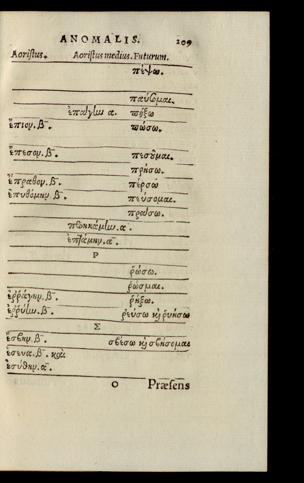 ANOMALIS. 209
Aoristus. Aoristus medius. Futurum.
πέψω.
παύσομαι.
πήξω
ἔπιον. β̄. πώσω.
ἔπεσον. β̄. πεσοῦμαι.
πρήσω.
ἔπραθον. β̄. πέρσω
ἐπυθόμην β̄. πεύσομαι.
ἐπτάμην. ᾱ.
Ρ
ῥώσω.
ῥώσομαι.
ἐῤῥάγην. β̄. ῥήξω.
ἐῤῥύην. β̄. ῥεύσω καὶ ῥυήσω
Σ
ἔσβην. β̄. σβέσω καὶ σβήσομαι
ἔσευα. β̄. καὶ
ἐσύθην. ᾱ.
O Præsens